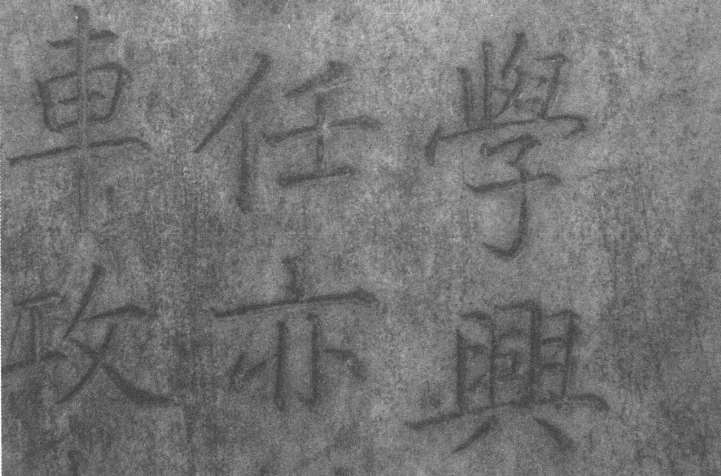 學興
任亦
車政